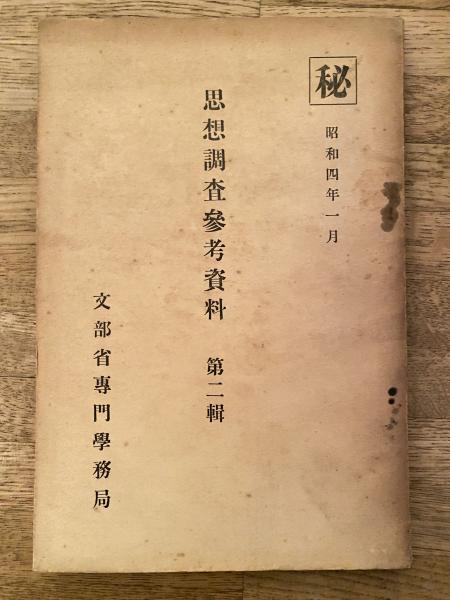 秘
昭和四年一月
思想調査參考資料 第二輯
文部省專門學務局